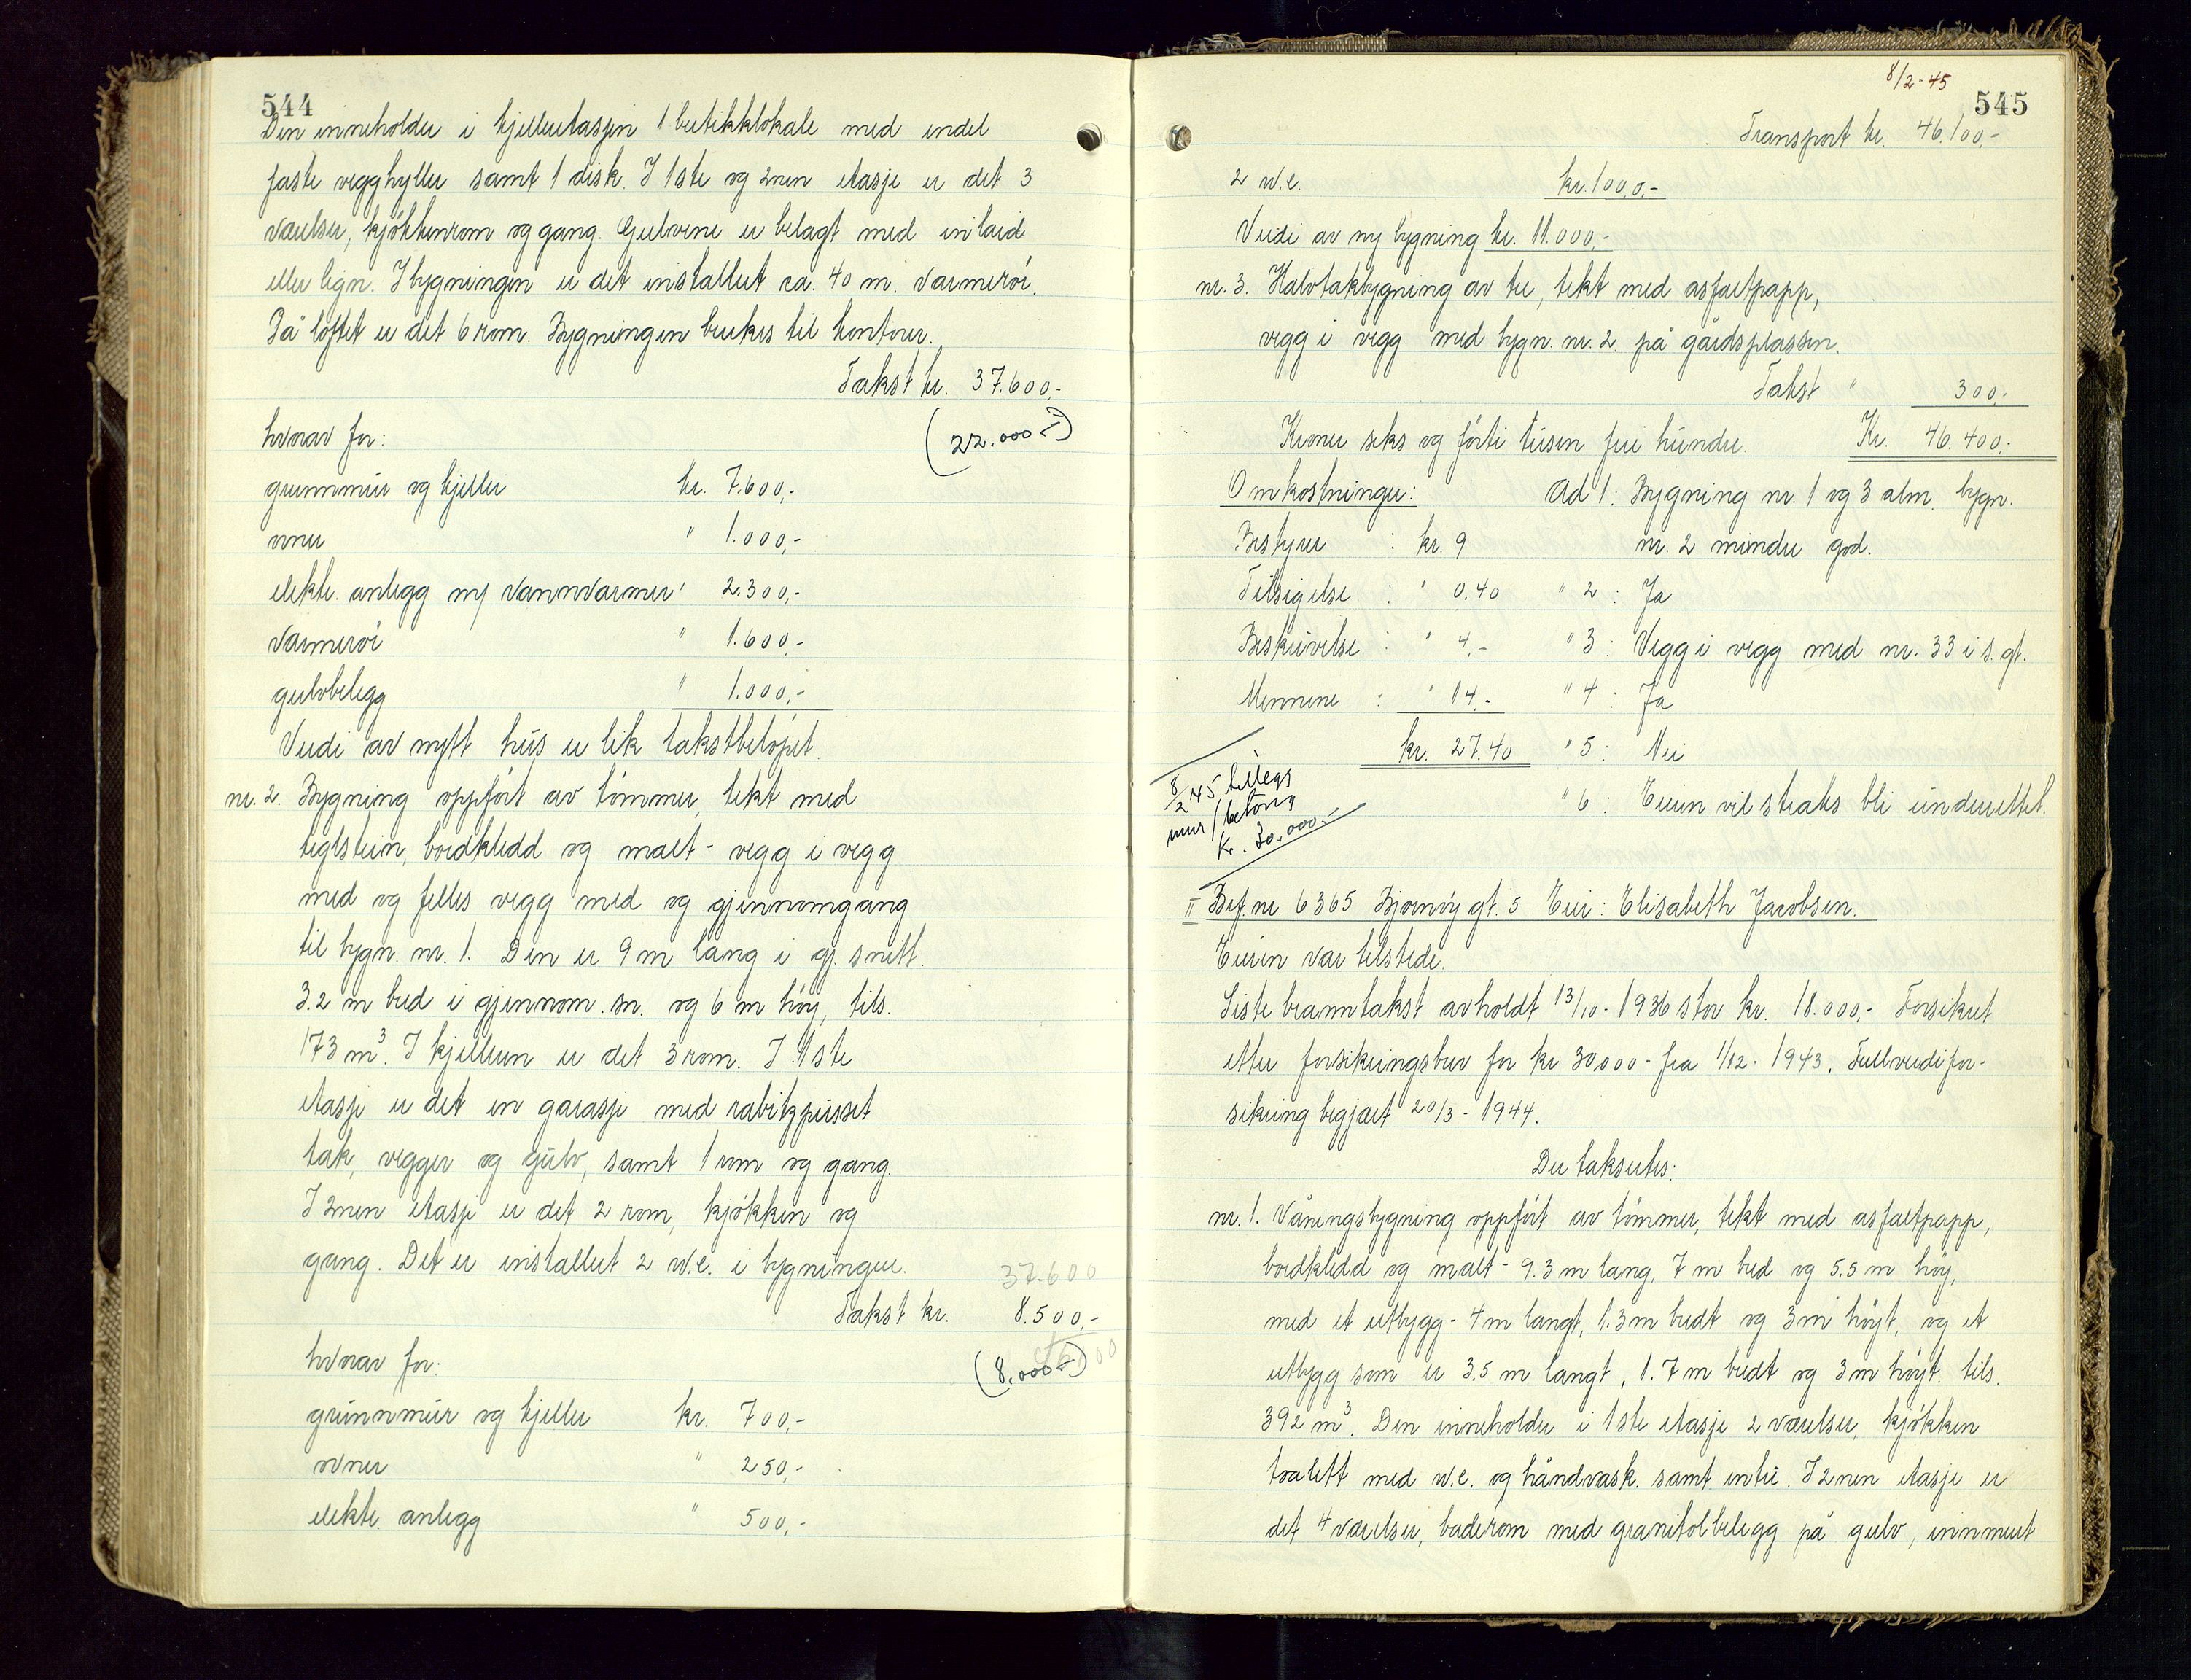 544
Den inneholder i kjelleretasjen 1 butikklokale med endel
faste vegghyller samt 1 disk. I 1ste og 2nen etasje er det 3
værelser, kjøkkenrom og gang. Gulvene er belagt med inlaid
eller lign. I bygningen er det installert ca. 40 m. varmerør.
På loftet er det 6 rom. Bygningen brukes til kontorer.
Takst kr. 37.600,-
hvorav for: (22.000,-)
grunnmur og kjeller kr. 7.600,-
ovner " 1.000,-
elektr. anlegg m/ vannvarmer " 2.300,-
varmerør " 1.600,-
gulvbelegg " 1.000,-
Verdi av nytt hus er lik takstbeløpet.
nr. 2. Bygning oppført av tømmer, tekt med
teglstein, bordkledd og malt - vegg i vegg
med og felles vegg med og gjennomgang
til bygn. nr. 1. Den er 9 m lang i gj. snitt.
3.2 m bred i gjennom.sn. og 6 m høy, tils.
173 m³. I kjelleren er det 3 rom. I 1ste
etasje er det en garasje med rabitzpusset
tak, vegger og gulv, samt 1 rom og gang.
I 2nen etasje er det 2 rom, kjøkken og
gang. Det er installert 2 w.c. i bygningen.
37.600
Takst kr. 8.500,-
hvorav for: (8.000,-)
grunnmur og kjeller kr. 700,-
ovner " 250,-
elektr. anlegg " 500,-
8/2-45
545
Transport kr. 46.100,-
2 w.c. kr. 1000,-
Verdi av ny bygning kr. 11.000,-
nr. 3. Halvtakbygning av tre, tekt med asfaltpapp,
vegg i vegg med bygn. nr. 2. på gårdsplassen.
Takst " 300,-
Kroner seks og førti tusen fire hundre. Kr. 46.400,-
Omkostninger: Ad 1: Bygning nr. 1 og 3 alm. bygn.
Bestyrer : kr. 9 nr. 2 mindre god.
Tilsigelse : " 0.40 " 2 : Ja
Beskrivelse : " 4,- " 3 : Vegg i vegg med nr. 33 i s. gt.
Mennene : " 14.- " 4 : Ja
kr. 27.40 " 5 : Nei
8/2 45 tillegs
mur/betong
Kr. 30.000.-
" 6 : Eieren vil straks bli underrettet.
II Brf. nr. 6365 Bjørnøy gt. 5 Eier: Elisabeth Jacobsen.
Eieren var tilstede.
Siste branntakst avholdt 13/10-1936 stor kr. 18.000,- Forsikret
etter forsikringsbrev for kr 30000- fra 1/12-1943. Fullverdifor-
sikring begjært 20/3-1944.
Der takseres:
nr. 1. Våningsbygning oppført av tømmer, tekt med asfaltpapp,
bordkledd og malt - 9.3 m lang, 7 m bred og 5.5 m høy,
med et utbygg - 4 m langt, 1.3 m bredt og 3 m høyt, og et
utbygg som er 3.5 m langt, 1.7 m bredt og 3 m høyt. tils.
392 m³. Den inneholder i 1ste etasje 2 værelser, kjøkken
toalett med w.c. og håndvask. samt entré. I 2nen etasje er
det 4 værelser, baderom med granitolbelegg på gulv, innmurt